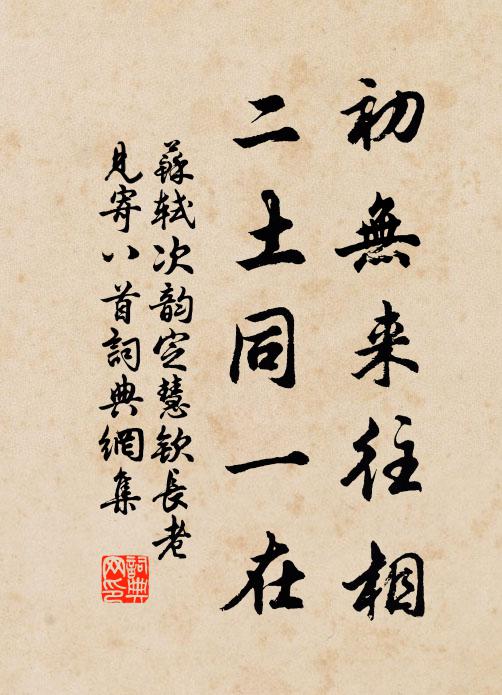 初無来往相
二土同一在
蘇軾次韵定慧欽長老
見寄八首詞典網集
詞典网印